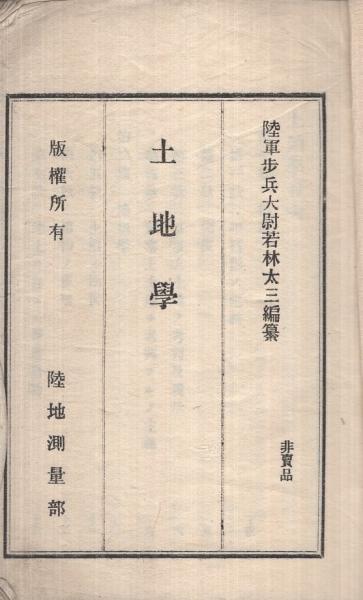 陸軍步兵大尉若林太三編纂
非賣品
土地學
版權所有
陸地測量部